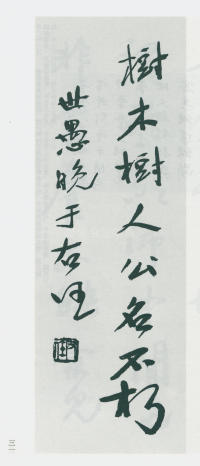 樹木樹人公名不朽
世愚晚于右任
三一